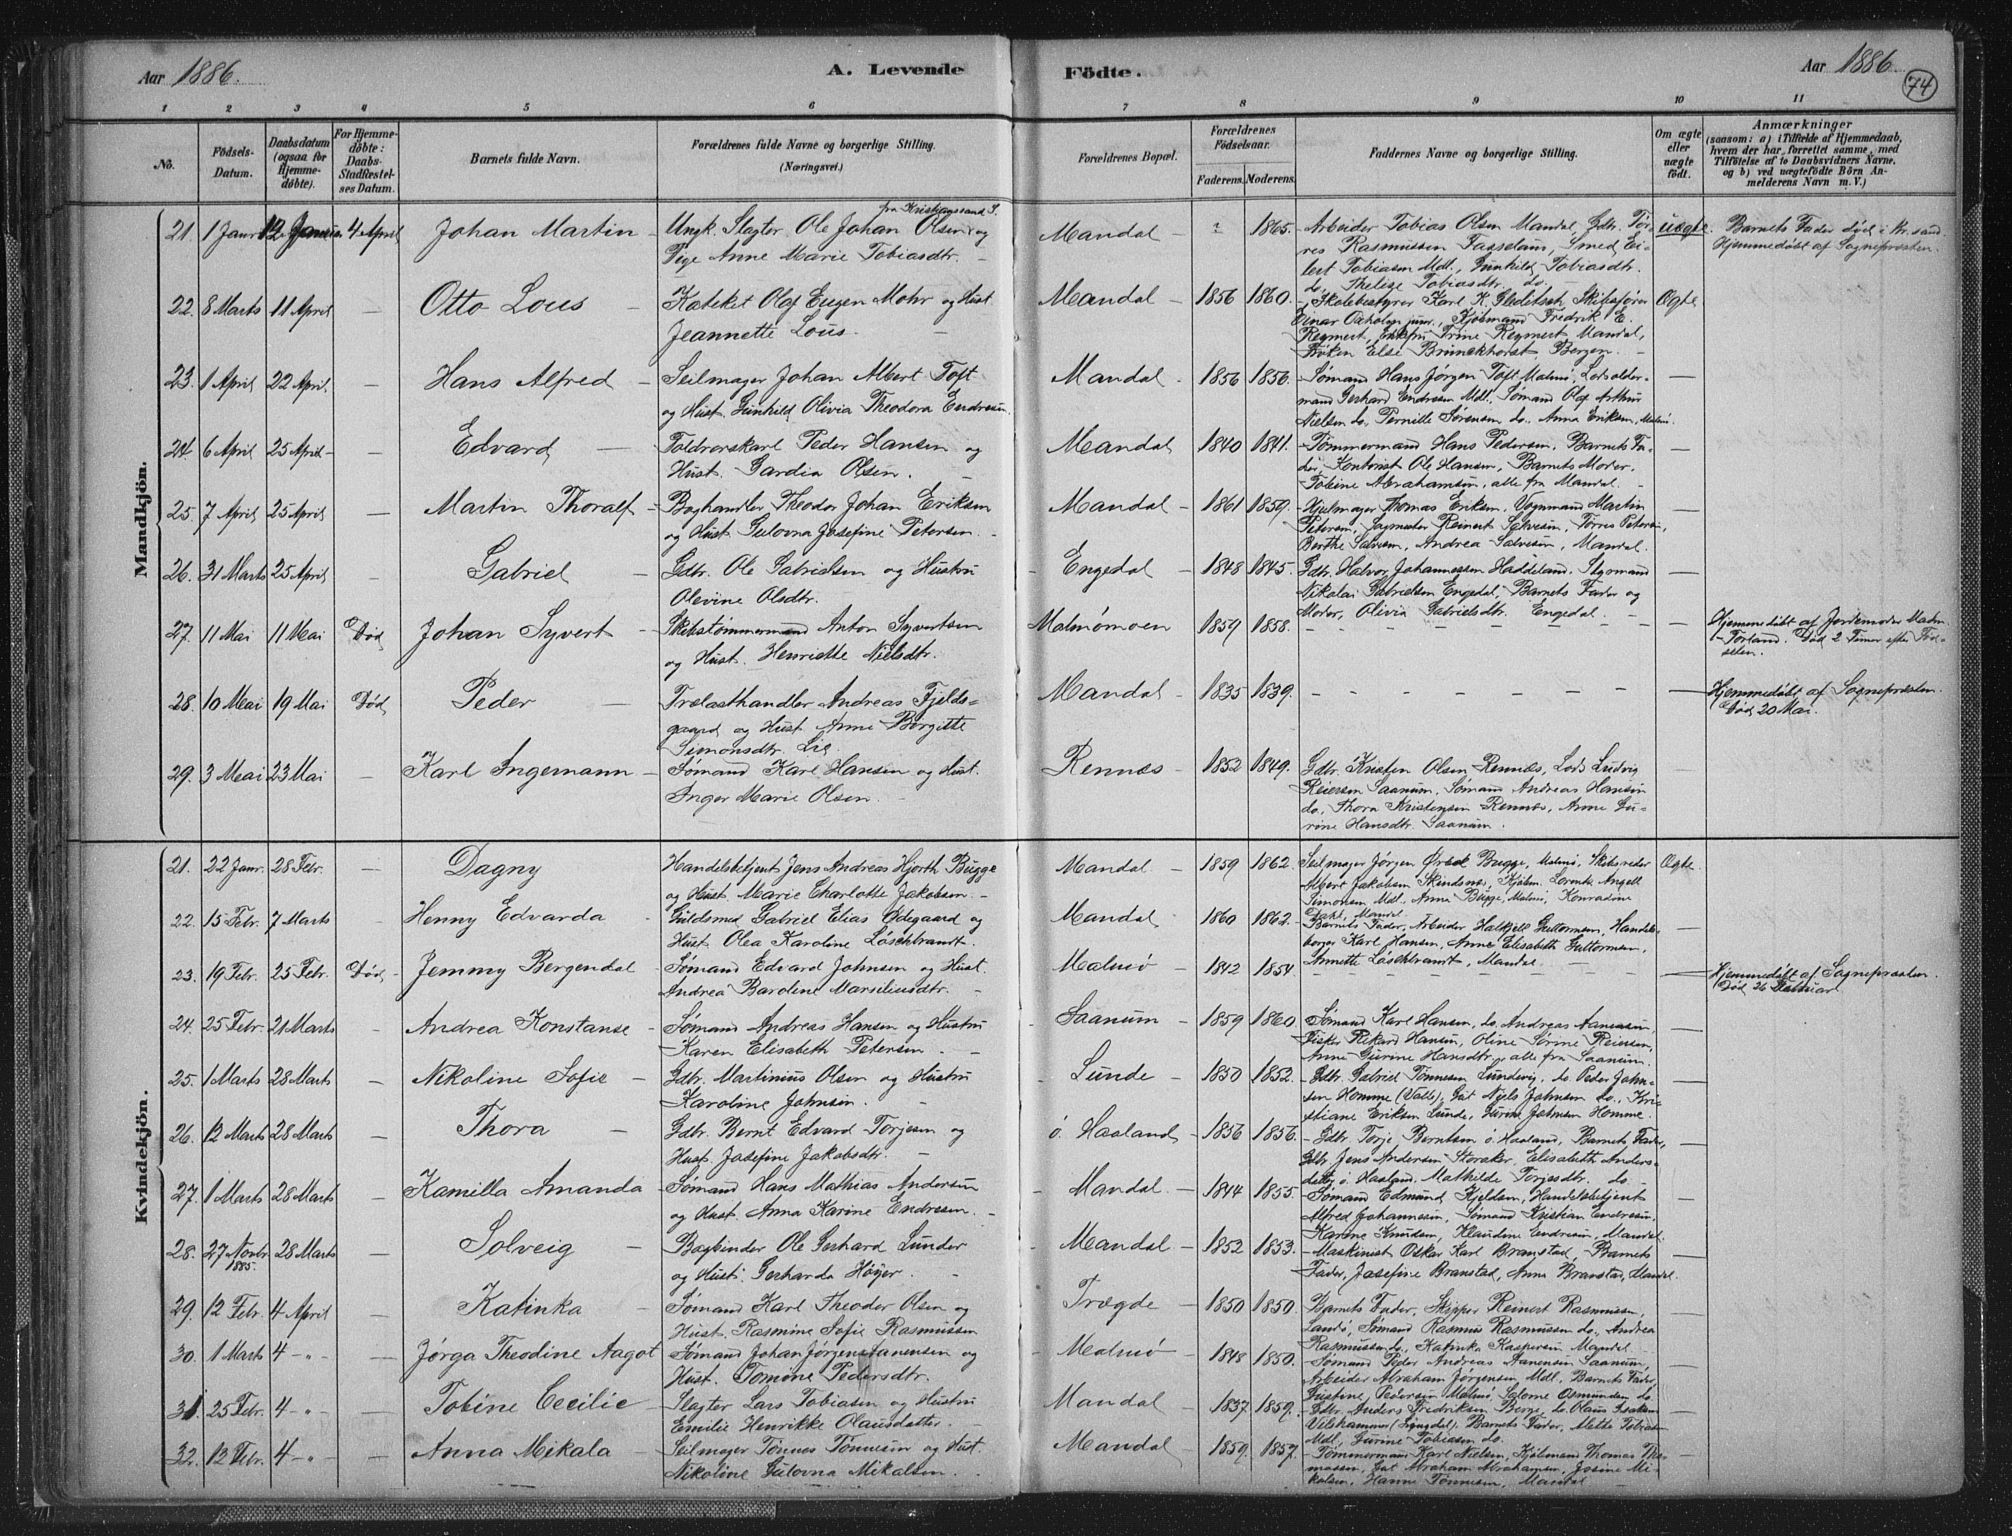 Aar 1886.
A. Levende
Födte.
Aar 1886
74
1 2 3 4 5 6 7 8 9 10 11
Nö.
Födsels-Datum.
Daabsdatum (ogsaa for Hjemmedöbte).
For Hjemmedöbte: Daabs-Stadfæstelses Datum.
Barnets fulde Navn.
Forældrenes fulde Navne og borgerlige Stilling. (Næringsvei.)
Forældrenes Bopæl.
Forældrenes Födselsaar.
Faderens. Moderens.
Faddernes Navne og borgerlige Stilling.
Om ægte eller uægte födt.
Anmærkninger
(saasom: a) i Tilfælde af Hjemmedaab, hvem der har forrettet samme, med Tilföielse af to Daabsvidners Navne, og b) ved uægtefödte Börn Anmelderens Navn m. V.)
Mandkjön.
21. 1 Janr 12 Januar 4 April Johan Martin Ungk. Slagter Ole Johan Olsen fra Kristianssand S. og
Pige Anne Marie Tobiasdtr.
Mandal ? 1865. Arbeider Tobias Olsen Mandal, Gdr. Tør-
res Rasmussen Fasseland, Smed Ei-
lert Tobiasen Mdl., Gunhild Tobiasdtr.
do, Thelese Tobiasdtr do
uægte Barnets Fader død i Kr.sand.
Hjemmedøbt af Sognepræsten.
22. 8 Marts 11 April Otto Lous Kateket Olaf Eugen Mohr og Hust.
Jeannette Lous.
Mandal 1856 1860. Skolebestyrer Karl K. Gleditsch, Skibsfører
Einar junr., Kjøbmand Fredrik E.
Reymert, Trine Reymert, Mandal,
Frøken Else Brunckhorst, Bergen.
Ægte
23. 1 April 22 April Hans Alfred Seilmager Johan Albert Toft
og Hust. Gunhild Olivia Theodora Endresen.
Mandal. 1856 1856. Sømand Hans Jørgen Toft Malmø, Lodsolder-
mand Gerhard Endresen Mdl. Sømand Olaf Arthur
Nielsen do, Pernille Sørensen do, Anna Eriksen, Malmø.
24. 6 April 25 April Edvard Toldrorskarl Peder Hansen og
Hust. Gardia Olsen.
Mandal 1840 1841. Tømmermand Hans Pedersen, Barnets Fa-
der, Ole Hansen, Barnets Moder,
Tobine Abrahamsen, alle fra Mandal.
25. 7 April 25 April Martin Thoralf Boghandler Theodor Johan Eriksen
og Hust. Gulovna Josefine Petersen.
Mandal 1861 1859. Thomas Eriksen, Vognmand Martin
Petersen, Reinert Salvesen, Tørres Petersen,
Berthe Salvesen, Andrea Salvesen, Mandal.
26. 31 Marts 25 April Gabriel Gdbr. Ole Gabrielsen og Hustru
Olevine Olsdtr.
Engedal 1848 1845. Gdbr. Halvor Johannessen Haddeland, Styrmand
Nikolai Gabrielsen Engedal, Barnets Fader og
Moder, Olivia Gabrielsdtr. Engedal.
27. 11 Mai 11 Mai Død Johan Syvert Skibstømmermand Anton Syvertsen
og Hust. Henriette Nielsdtr.
Malmømoen 1859 1858.
Hjemmedøbt af Jordemoder Madm.
Torland. Død 2 Timer efter Fød-
selen.
28. 10 Mai 19 Mai Død Peder Trælasthandler Andreas Fjelds-
gaard og Hust Anne Borgitte
Simonsdtr. Lie.
Mandal 1835 1839.
Hjemmedøbt af Sognepræsten.
Død 20 Mai.
29. 3 Mai 23 Mai Karl Ingemann Sømand Karl Hansen og Hust.
Inger Marie Olsen.
Rennæs 1852 1849. Gdbr. Kristen Olsen Rennæs, Lods Ludvig
Reiersen Saanum. Sømand Andreas Hansen
do, Thora Kristensen Rennæs, Anne Gu-
rine Hansdtr. Saanum.
Kvindekjön.
21. 22 Janr. 28 Febr. Dagny Handelsbetjent Jens Andreas Hjorth Bugge
og Hust. Marie Charlotte Jakobsen.
Mandal 1859 1862 Seilmager Jørgen Bugge, Malmø, Skibsreder
Albert Jakobsen Skindsnæs, Kjøbm. Lorentz Angell
Simonsen Mdl. Anna Bugge, Malmø, Konradine
Dahl, Mandal
Ægte
22. 15 Febr. 7 Marts Henny Edvarda Guldsmed Gabriel Elias Ødegaard og
Hust. Olea Karoline Løschbrandt.
Mandal 1860 1862. Barnets Fader, Arbeider Guttormsen, Handels-
borger Karl Hansen, Anne Elisabeth Guttormsen,
Annette Løschbrandt, Mandal.
23. 19 Febr. 25 Febr. Død Jemmy Bergendal Sømand Edvard Johnsen og Hust.
Andrea Baroline Marseliusdtr.
Malmø 1842 1854
Hjemmedøbt af Sognepræsten.
Død 26 Februar
24. 25 Febr. 21 Marts Andrea Konstanse Sømand Andreas Hansen og Hustru
Karen Elisabeth Petersen
Saanum 1859 1860. Sømand Karl Hansen, do Andreas Aanensen,
Fisker Rikard Hansen, Oline Sørine Reiersen,
Anne Gurine Hansdtr., alle fra Saanum.
25. 1 Marts 28 Marts Nikoline Sofie Gdbr. Martinius Olsen og Hustru
Karoline Johnsen.
Lunde 1850 1852. Gdbr. Gabriel Tønnesen Lundevig, do. Peder John-
sen Homme (Valle), Niels Johnsen do., Kri-
stiane Eriksen Lunde, Gurine Johnsen Homme.
26. 12 Marts 28 Marts Thora Gdbr. Bernt Edvard Torjesen og
Hust. Josefine Jakobsdtr.
ö. Haaland 1856 1856. Gdbr. Torje Berntsen ö. Haaland, Barnets Fader,
Gdbr. Jens Andersen Storaker, Elisabeth Anders-
datter ö. Haaland, Mathilde Torjesdtr. do
27. 1 Marts 28 Marts Kamilla Amanda Sømand Hans Mathias Andersen
og Hust. Anna Karine Endresen.
Mandal 1844 1855. Sømand Edmund Kjeldsen, Handelsbetjent
Alfred Johannesen, Sømand Kristian Endresen,
Karine Knudsen, Klaudine Endresen, Mandal.
28. 27 Novbr. 1885. 28 Marts Solveig Bogbinder Ole Gerhard Lunder
og Hust. Gerharda Høyer.
Mandal 1852 1853. Maskinist Oskar Karl Branstad, Barnets
Fader, Josefine Branstad, Anna Branstad, Mandal.
29. 12 Febr. 4 April Katinka Sømand Karl Theodor Olsen og
Hust. Rasmine Sofie Rasmussen
Trægde 1850 1850. Barnets Fader, Skipper Reinert Rasmussen,
Landø, Sømand Rasmus Rasmussen do. Andrea
Rasmussen do. Katinka Kaspersen Mandal
30. 1 Marts 4 -"- Jørga Theodine Aagot Sømand Johan Jørgen Aanensen og
Hust. Tomine Pedersdtr.
Malmø 1848 1850. Sømand Peder Andreas Aanensen Saanum,
Arbeider Abraham Jørgensen, Mdl. Barnets Fader,
Pedersen Malmø, Salome Osmundsen do.
31. 25 Febr. 4 -"- Tobine Cecilie Slagter Lars Tobiasen og Hustru
Emilie Henrikke Olausdatter.
Mandal 1837 1859. Gdbr. Anders Fredriksen Berge, do Olaus Isaksen
(Lyngdal), Barnets Fader, Mette Tobiasen
Mdl., Gurine Tobiasen do.
32. 12 Febr. 4 -"- Anna Mikala Seilmager Tønnes Tønnesen og Hust.
Nikoline Gulovna Mikalsen.
Mandal 1859. 1857. Tømmermand Karl Nielsen, Kjøbmand Thomas Tho-
massen, Abraham Abrahamsen, Josine Mi-
kalsen, Hanne Tønnesen, Mandal